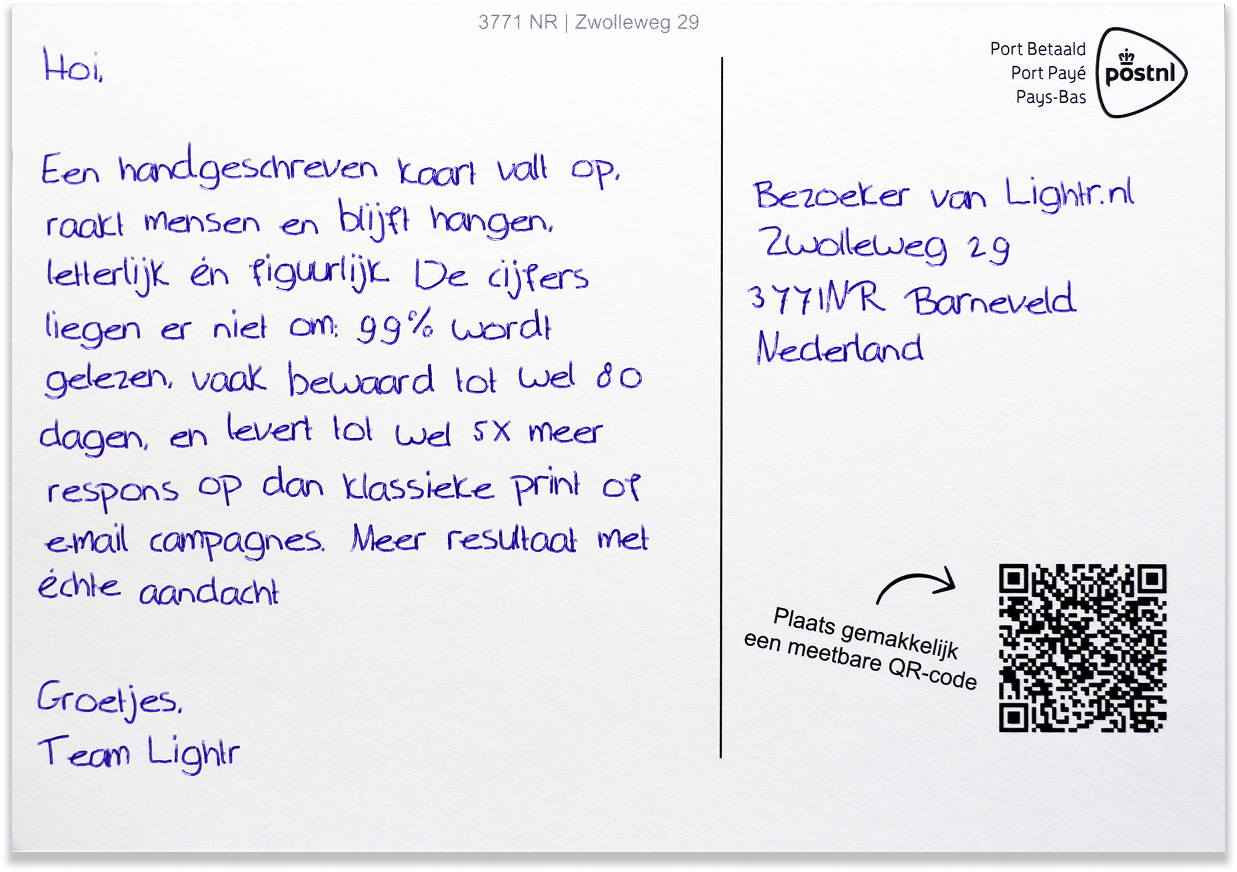 3771 NR | Zwolleweg 29
Hoi,
Een handgeschreven kaart valt op,
raakt mensen en blijft hangen,
letterlijk én figuurlijk. De cijfers
liegen er niet om: 99% wordt
gelezen, vaak bewaard tot wel 80
dagen, en levert tot wel 5X meer
respons op dan klassieke print of
e-mail campagnes. Meer resultaat met
échte aandacht
Groetjes,
Team Lightr
Port Betaald
Port Payé
Pays-Bas
postnl
Bezoeker van Lightr.nl
Zwolleweg 29
3771NR Barneveld
Nederland
Plaats gemakkelijk
een meetbare QR-code